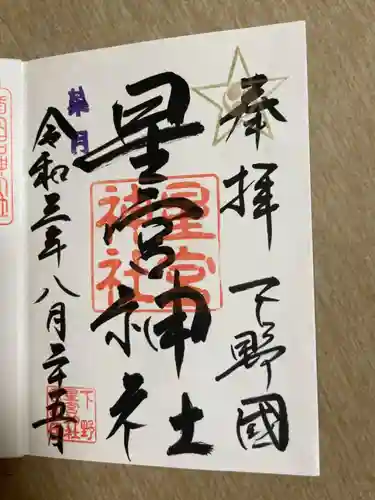 奉拝 下野國
星宮神社
葉月
令和三年八月二十五日
星宮神社
下野
星宮
神社